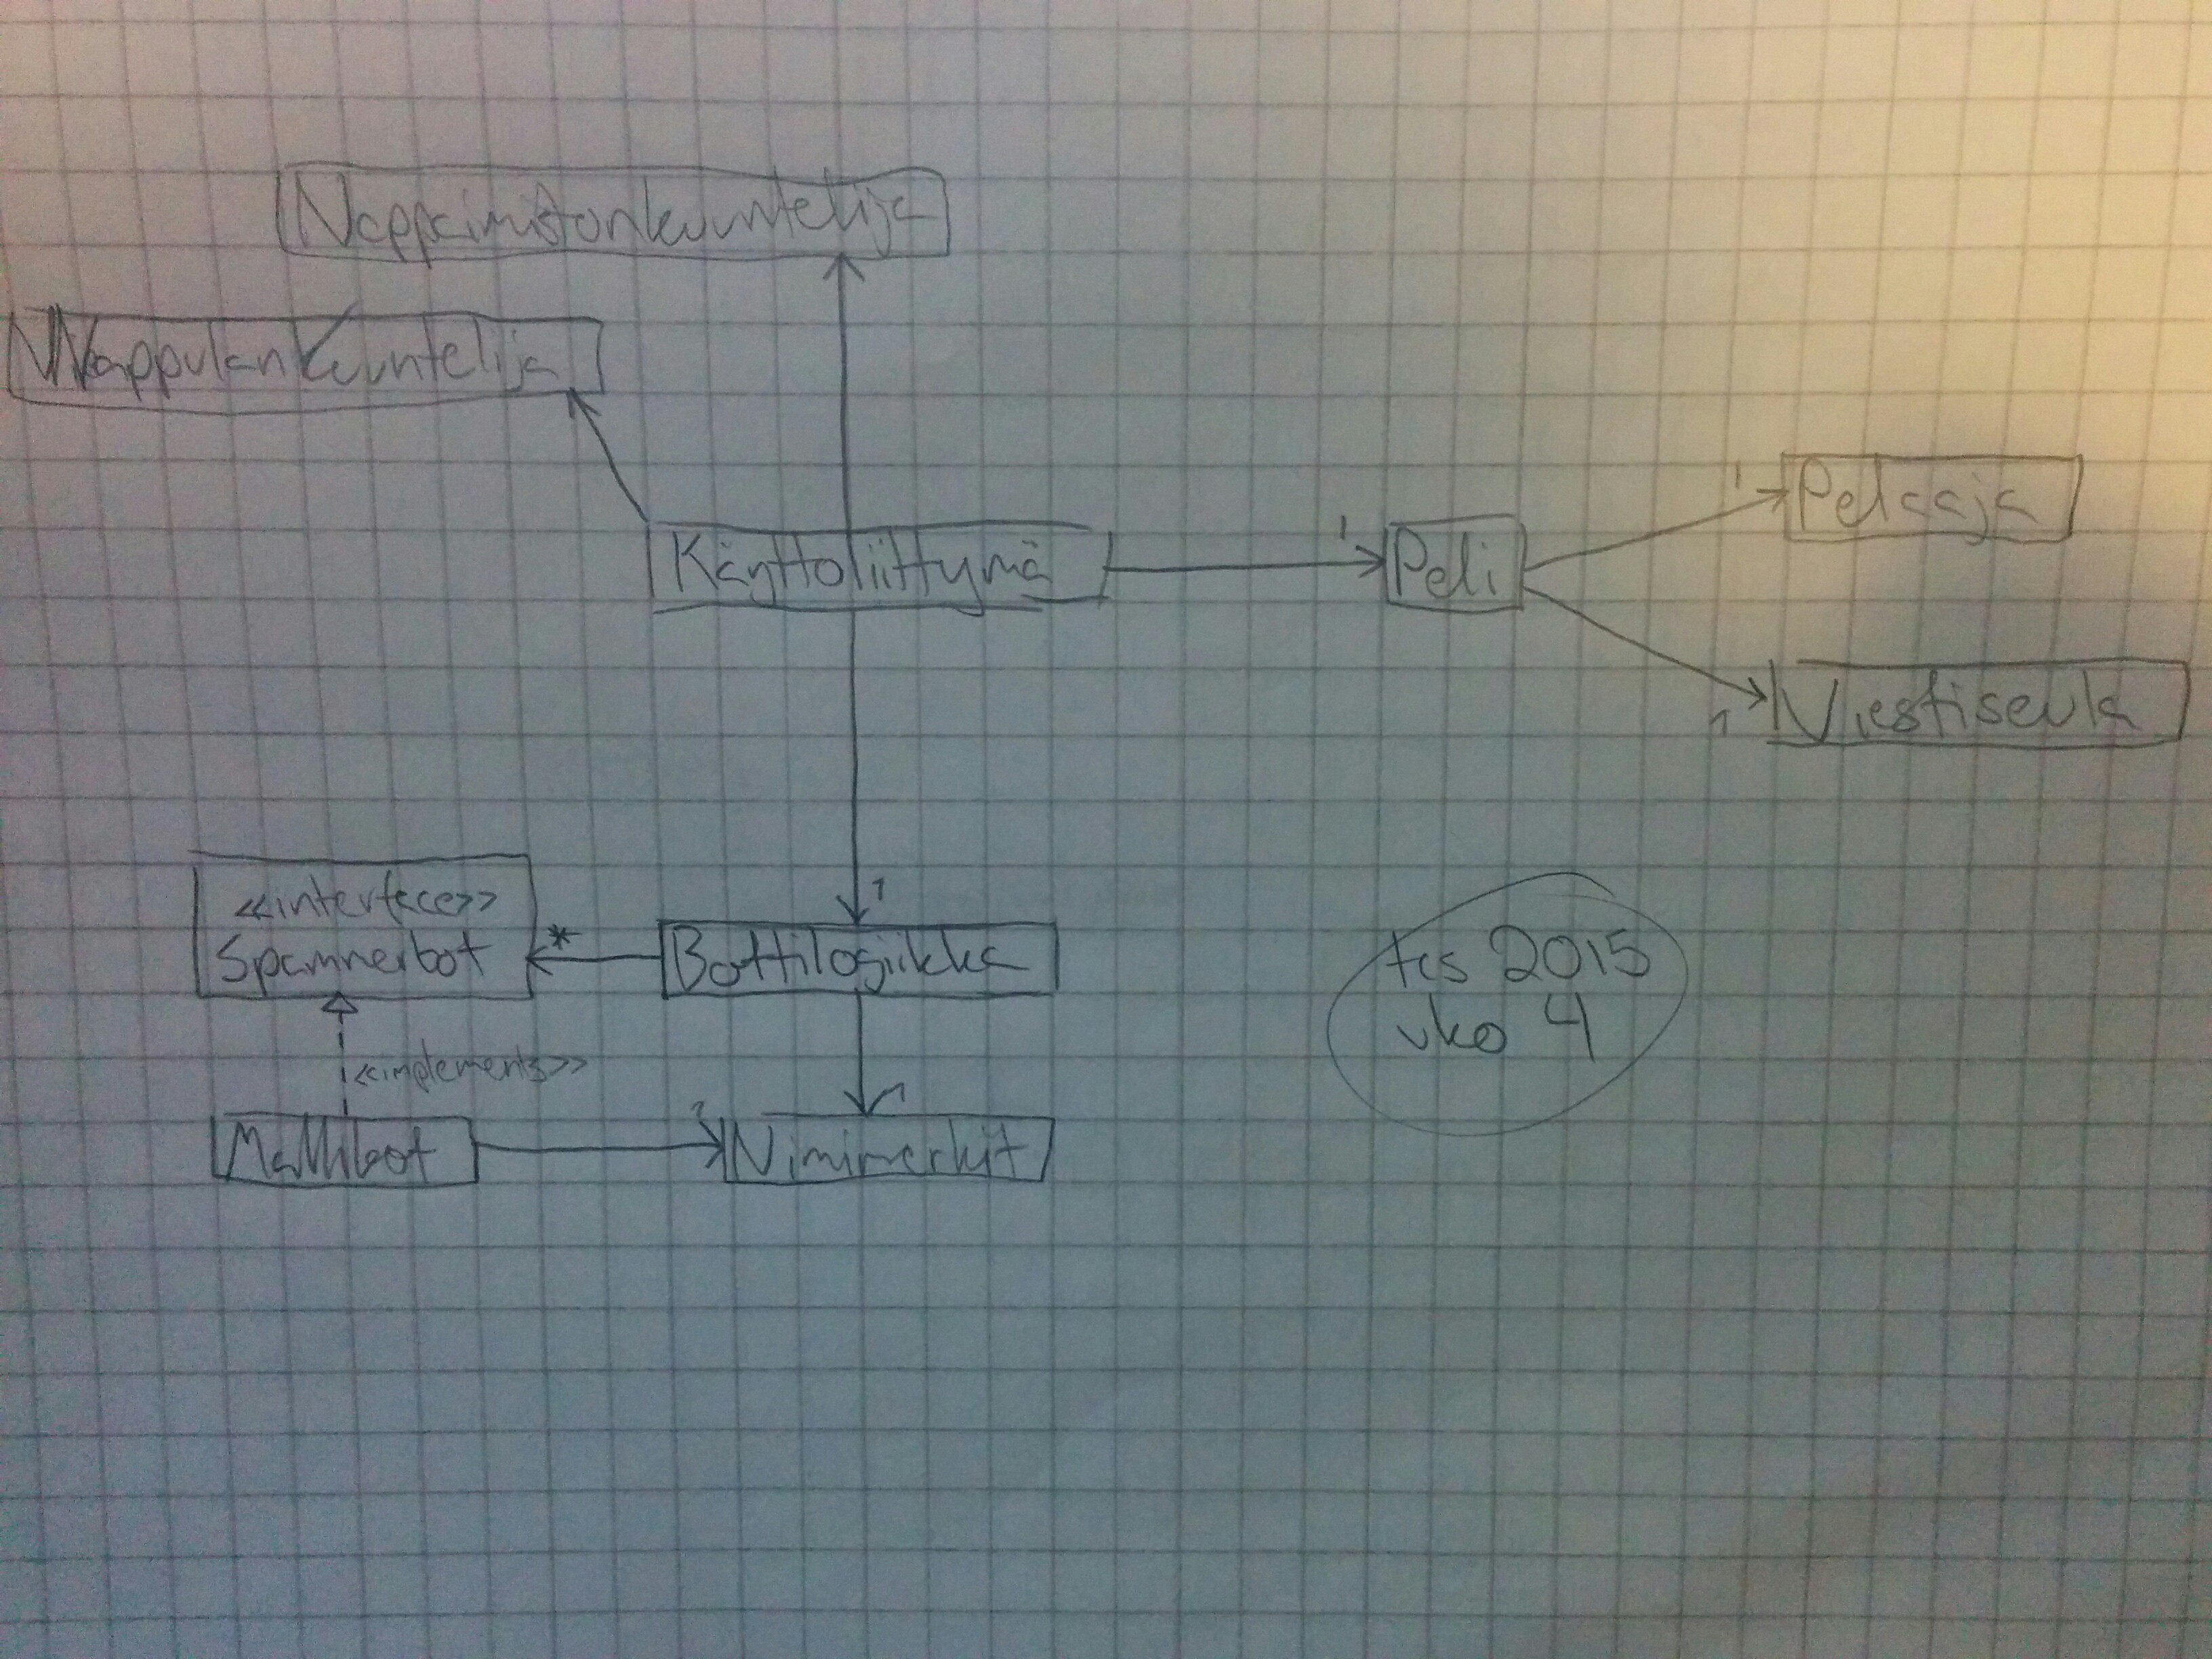 Nappaimistonkuuntelija
Nappulankuuntelija
Käyttoliittymä
1
Peli
1
Pelaaja
1
Viestiseula
<<interface>>
Spammerbot
*
1
Bottilogiikka
tcs 2015
vko 4
<<implements>>
Mallibot
1
Nimimerkit